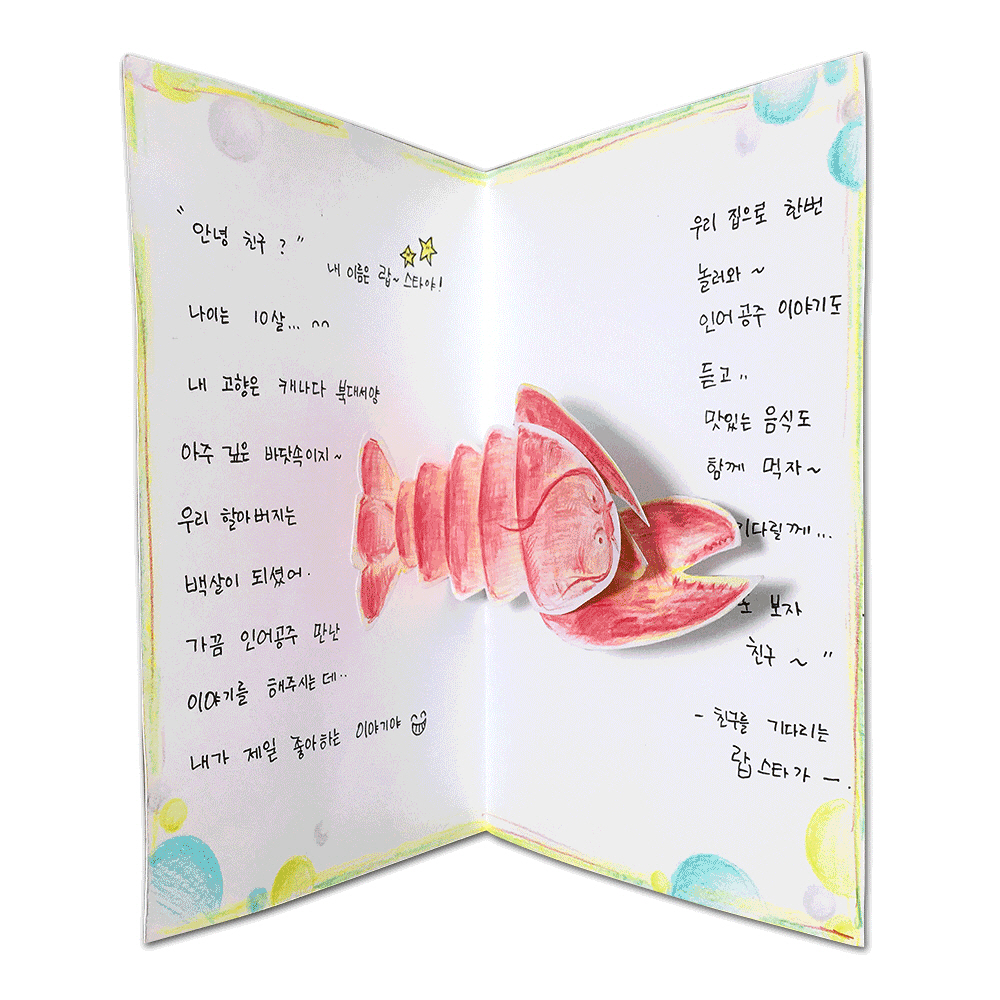 "안녕 친구 ?"
내 이름은 랍~ 스타야!
나이는 10살... ^^
내 고향은 캐나다 북대서양
아주 깊은 바닷속이지~
우리 할아버지는
백살이 되셨어.
가끔 인어공주 만난
이야기를 해주시는데..
내가 제일 좋아하는 이야기야
우리 집으로 한번
놀러와 ~
인어공주 이야기도
듣고..
맛있는 음식도
함께 먹자~
다릴께...
보자
친구 ~ "
- 친구를 기다리는
랍스타가 -.